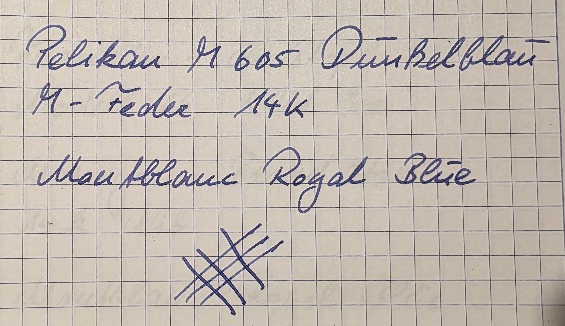 Pelikan M 605 Dunkelblau
M-Feder 14K
Montblanc Royal Blue